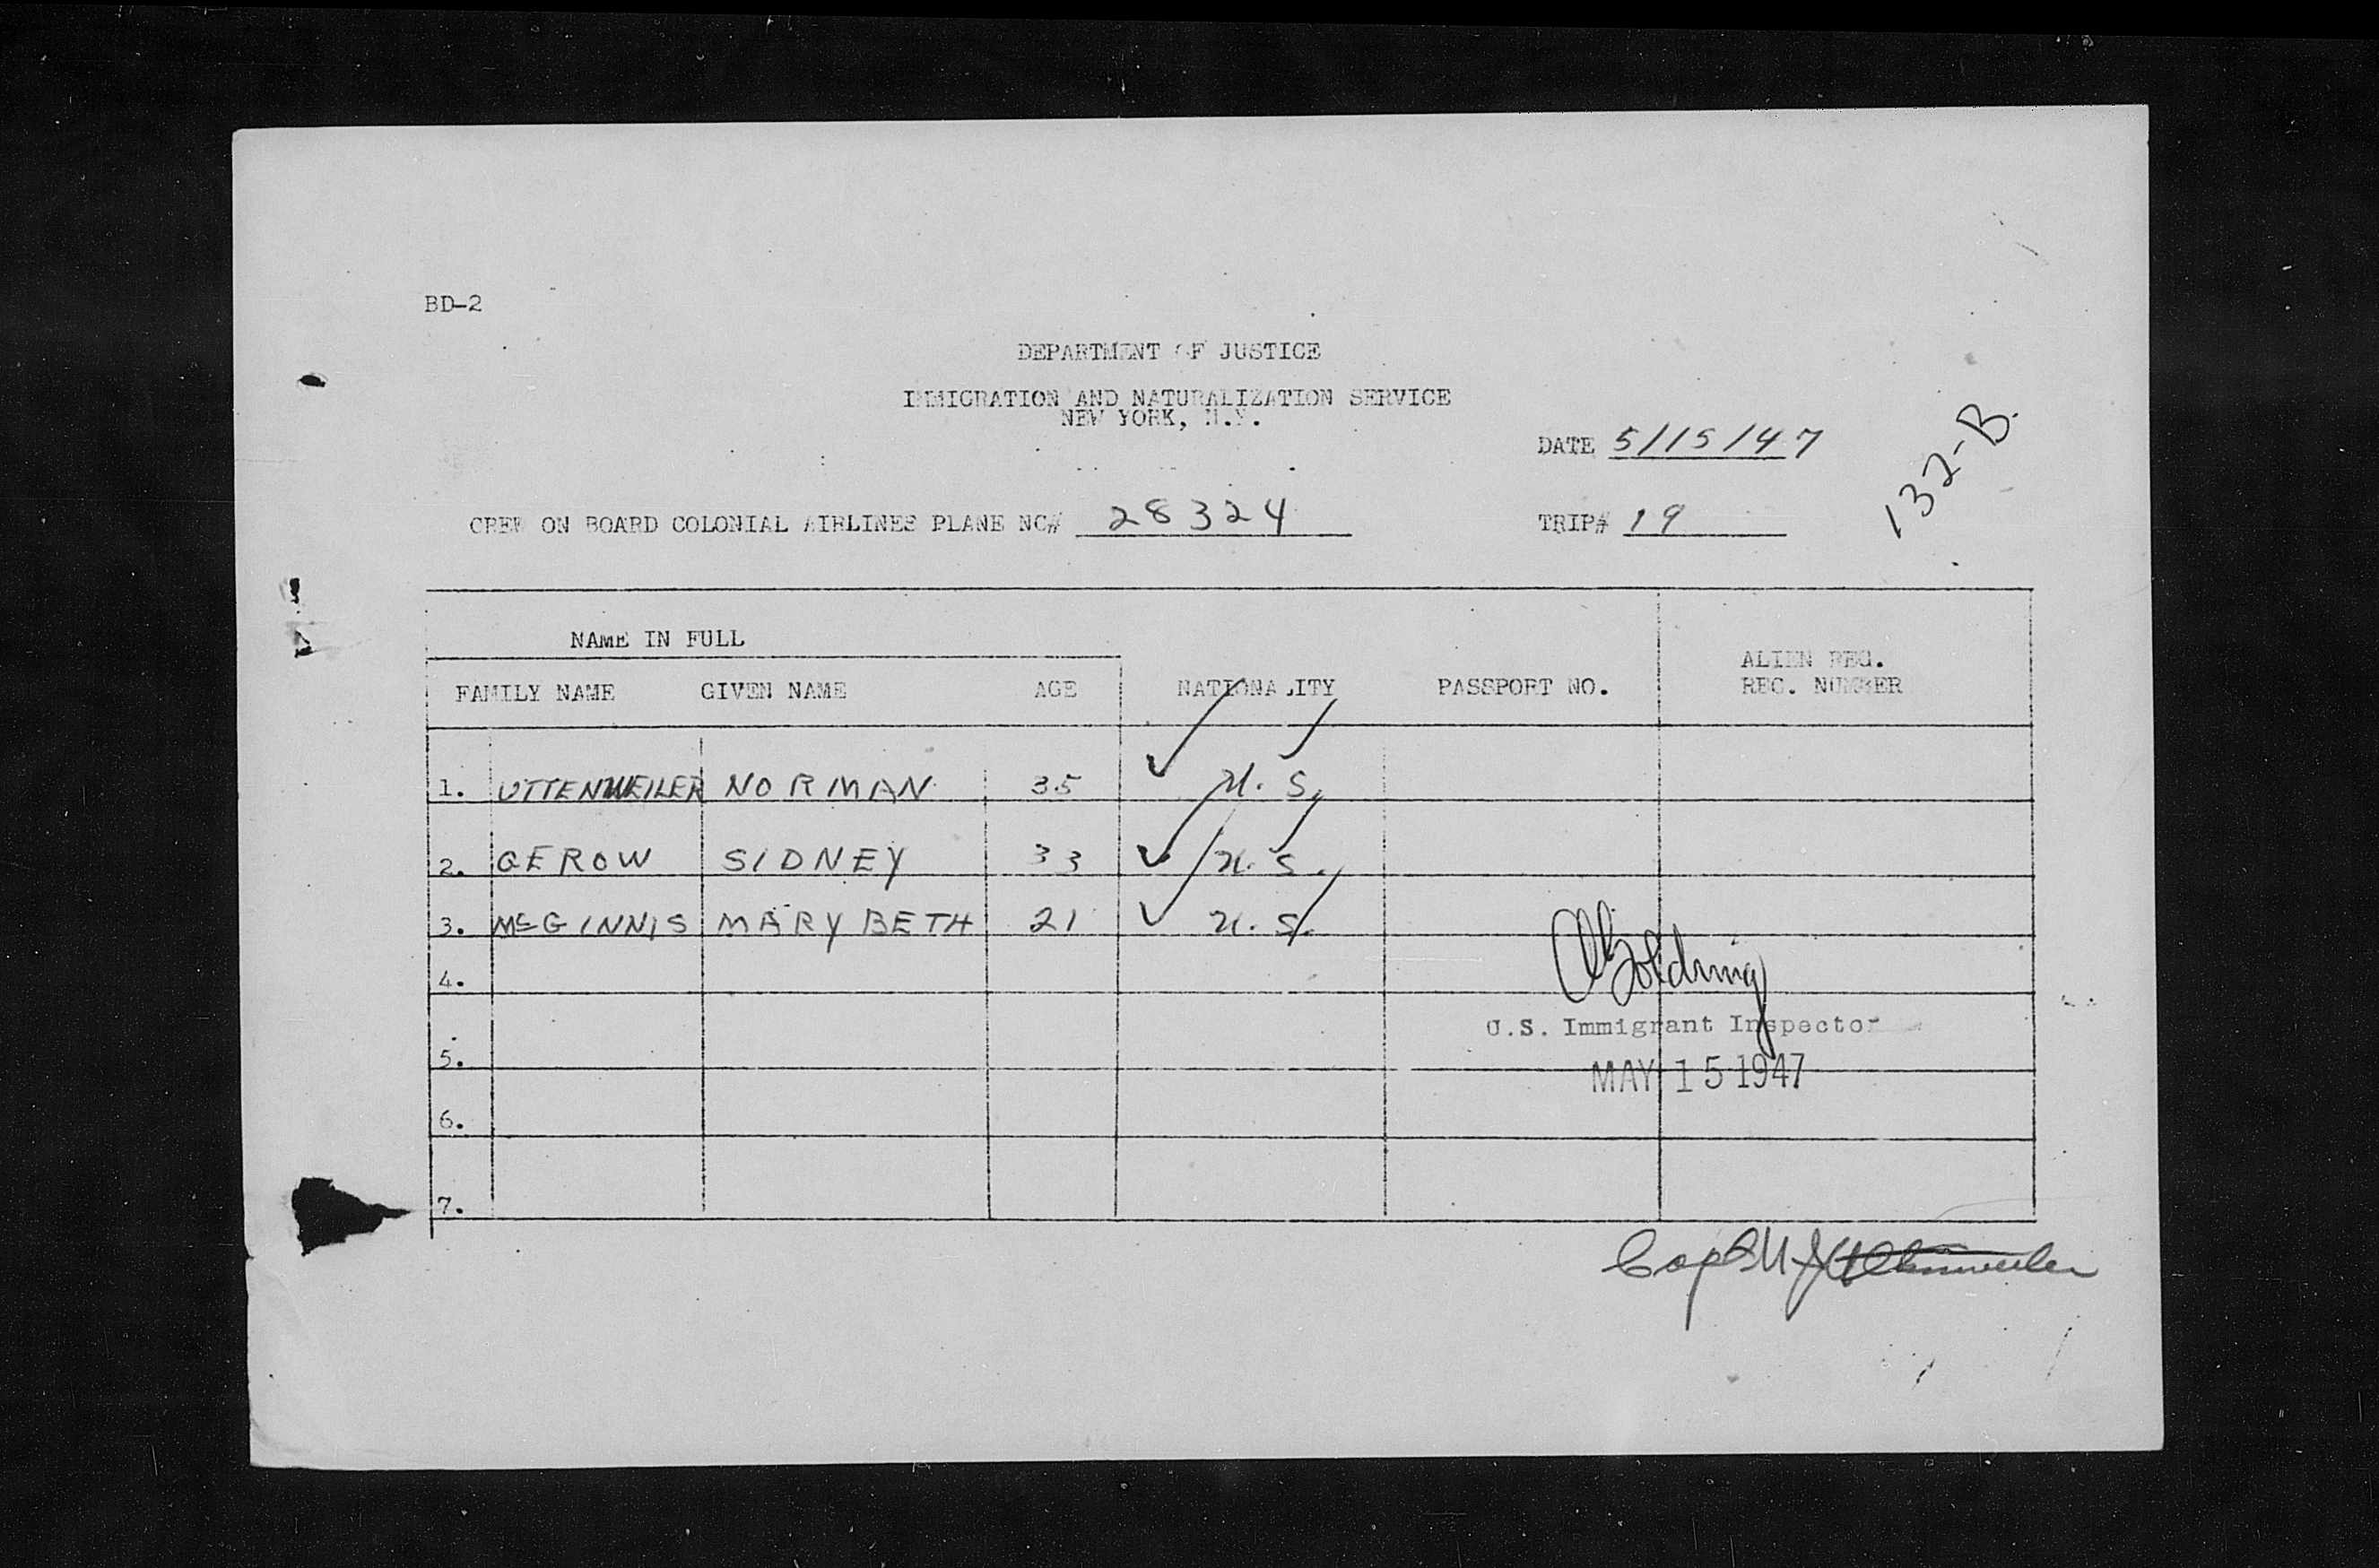 BD-2
DEPARTMENT OF JUSTICE
IMMIGRATION AND NATURALIZATION SERVICE
NEW YORK, N.Y.
DATE 5/15/47
132-B.
CREW ON BOARD COLONIAL AIRLINES PLANE NC# 28324 TRIP# 19
NAME IN FULL
FAMILY NAME GIVEN NAME AGE NATIONALITY PASSPORT NO. ALIEN REG. REC. NUMBER
1. UTTENWEILER NORMAN 35 U.S.
2. GEROW SIDNEY 33 U.S.
3. McGINNIS MARY BETH 21 U.S.
4.
Goldring
U.S. Immigrant Inspector
5.
MAY 15 1947
6.
7.
Capt N J Uttenweiler